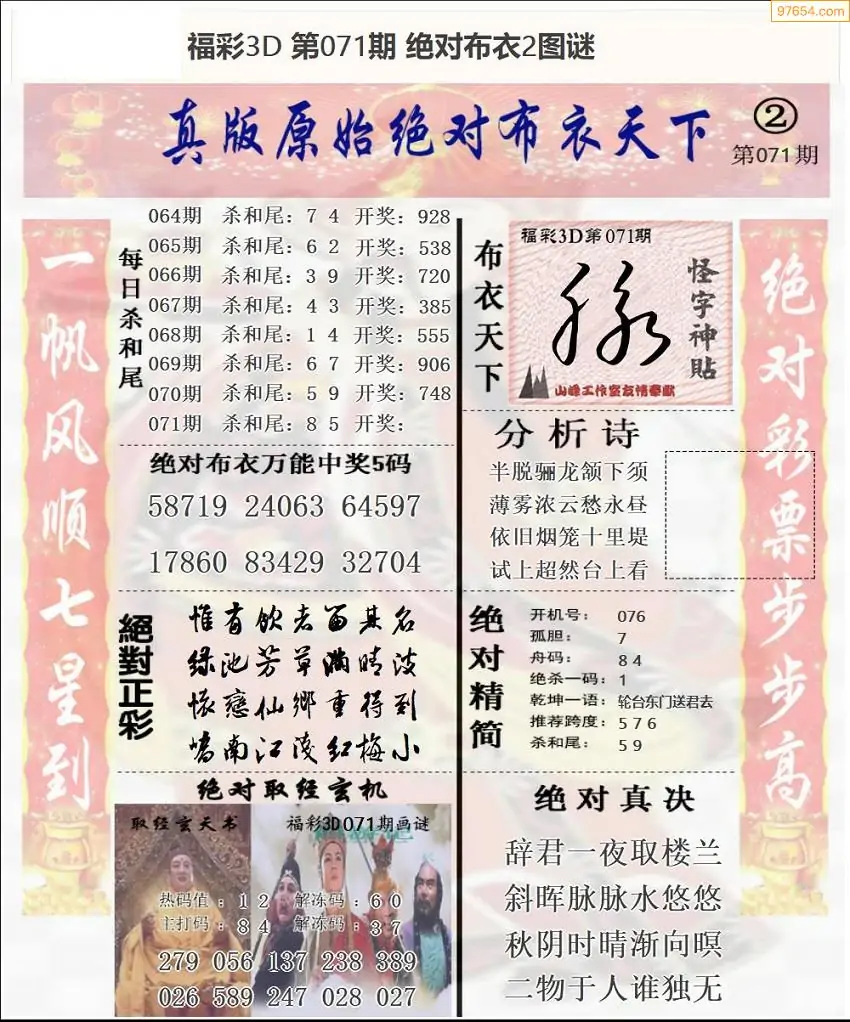 97654.com
福彩3D 第071期 绝对布衣2图谜
真版原始绝对布衣天下
②
第071期
一帆风顺七星到
每日杀和尾
064期 杀和尾：7 4 开奖：928
065期 杀和尾：6 2 开奖：538
066期 杀和尾：3 9 开奖：720
067期 杀和尾：4 3 开奖：385
068期 杀和尾：1 4 开奖：555
069期 杀和尾：6 7 开奖：906
070期 杀和尾：5 9 开奖：748
071期 杀和尾：8 5 开奖：
绝对布衣万能中奖5码
58719 24063 64597
17860 83429 32704
絕對正彩
惟有饮者留其名
绿池芳草满晴波
怀恋仙鄉重得到
嶠南江浅红梅小
绝对取经玄机
取经玄天书
福彩3D071期画谜
热码值：1 2 解冻码：6 0
主打码：8 4 解冻码：3 7
279 056 137 238 389
026 589 247 028 027
布衣天下
福彩3D第071期
脉
怪字神贴
山峰工作室友情奉献
分析诗
半脱骊龙颔下须
薄雾浓云愁永昼
依旧烟笼十里堤
试上超然台上看
绝对精简
开机号： 076
孤胆： 7
舟码： 8 4
绝杀一码：1
乾坤一语：轮台东门送君去
推荐跨度：5 7 6
杀和尾： 5 9
绝对真决
辞君一夜取楼兰
斜晖脉脉水悠悠
秋阴时晴渐向暝
二物于人谁独无
绝对彩票步步高